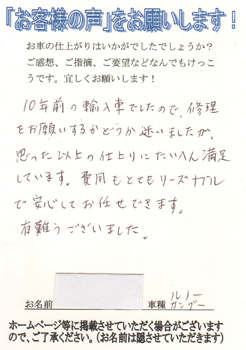 「お客様の声」をお願いします！
お車の仕上がりはいかがでしたでしょうか？
ご感想、ご指摘、ご要望などなんでもけっこ
うです。宜しくお願いします！
10年前の輸入車でしたので、修理
をお願いするかどうか迷いましたが、
思った以上の仕上りにたいへん満足
しています。費用もとてもリーズナブル
で安心してお任せできます。
有難うございました。
お名前
車種 ルノー
カングー
ホームページ等に掲載させていただく場合がございます
ので、ご了承ください。（お名前は隠させていただきます）